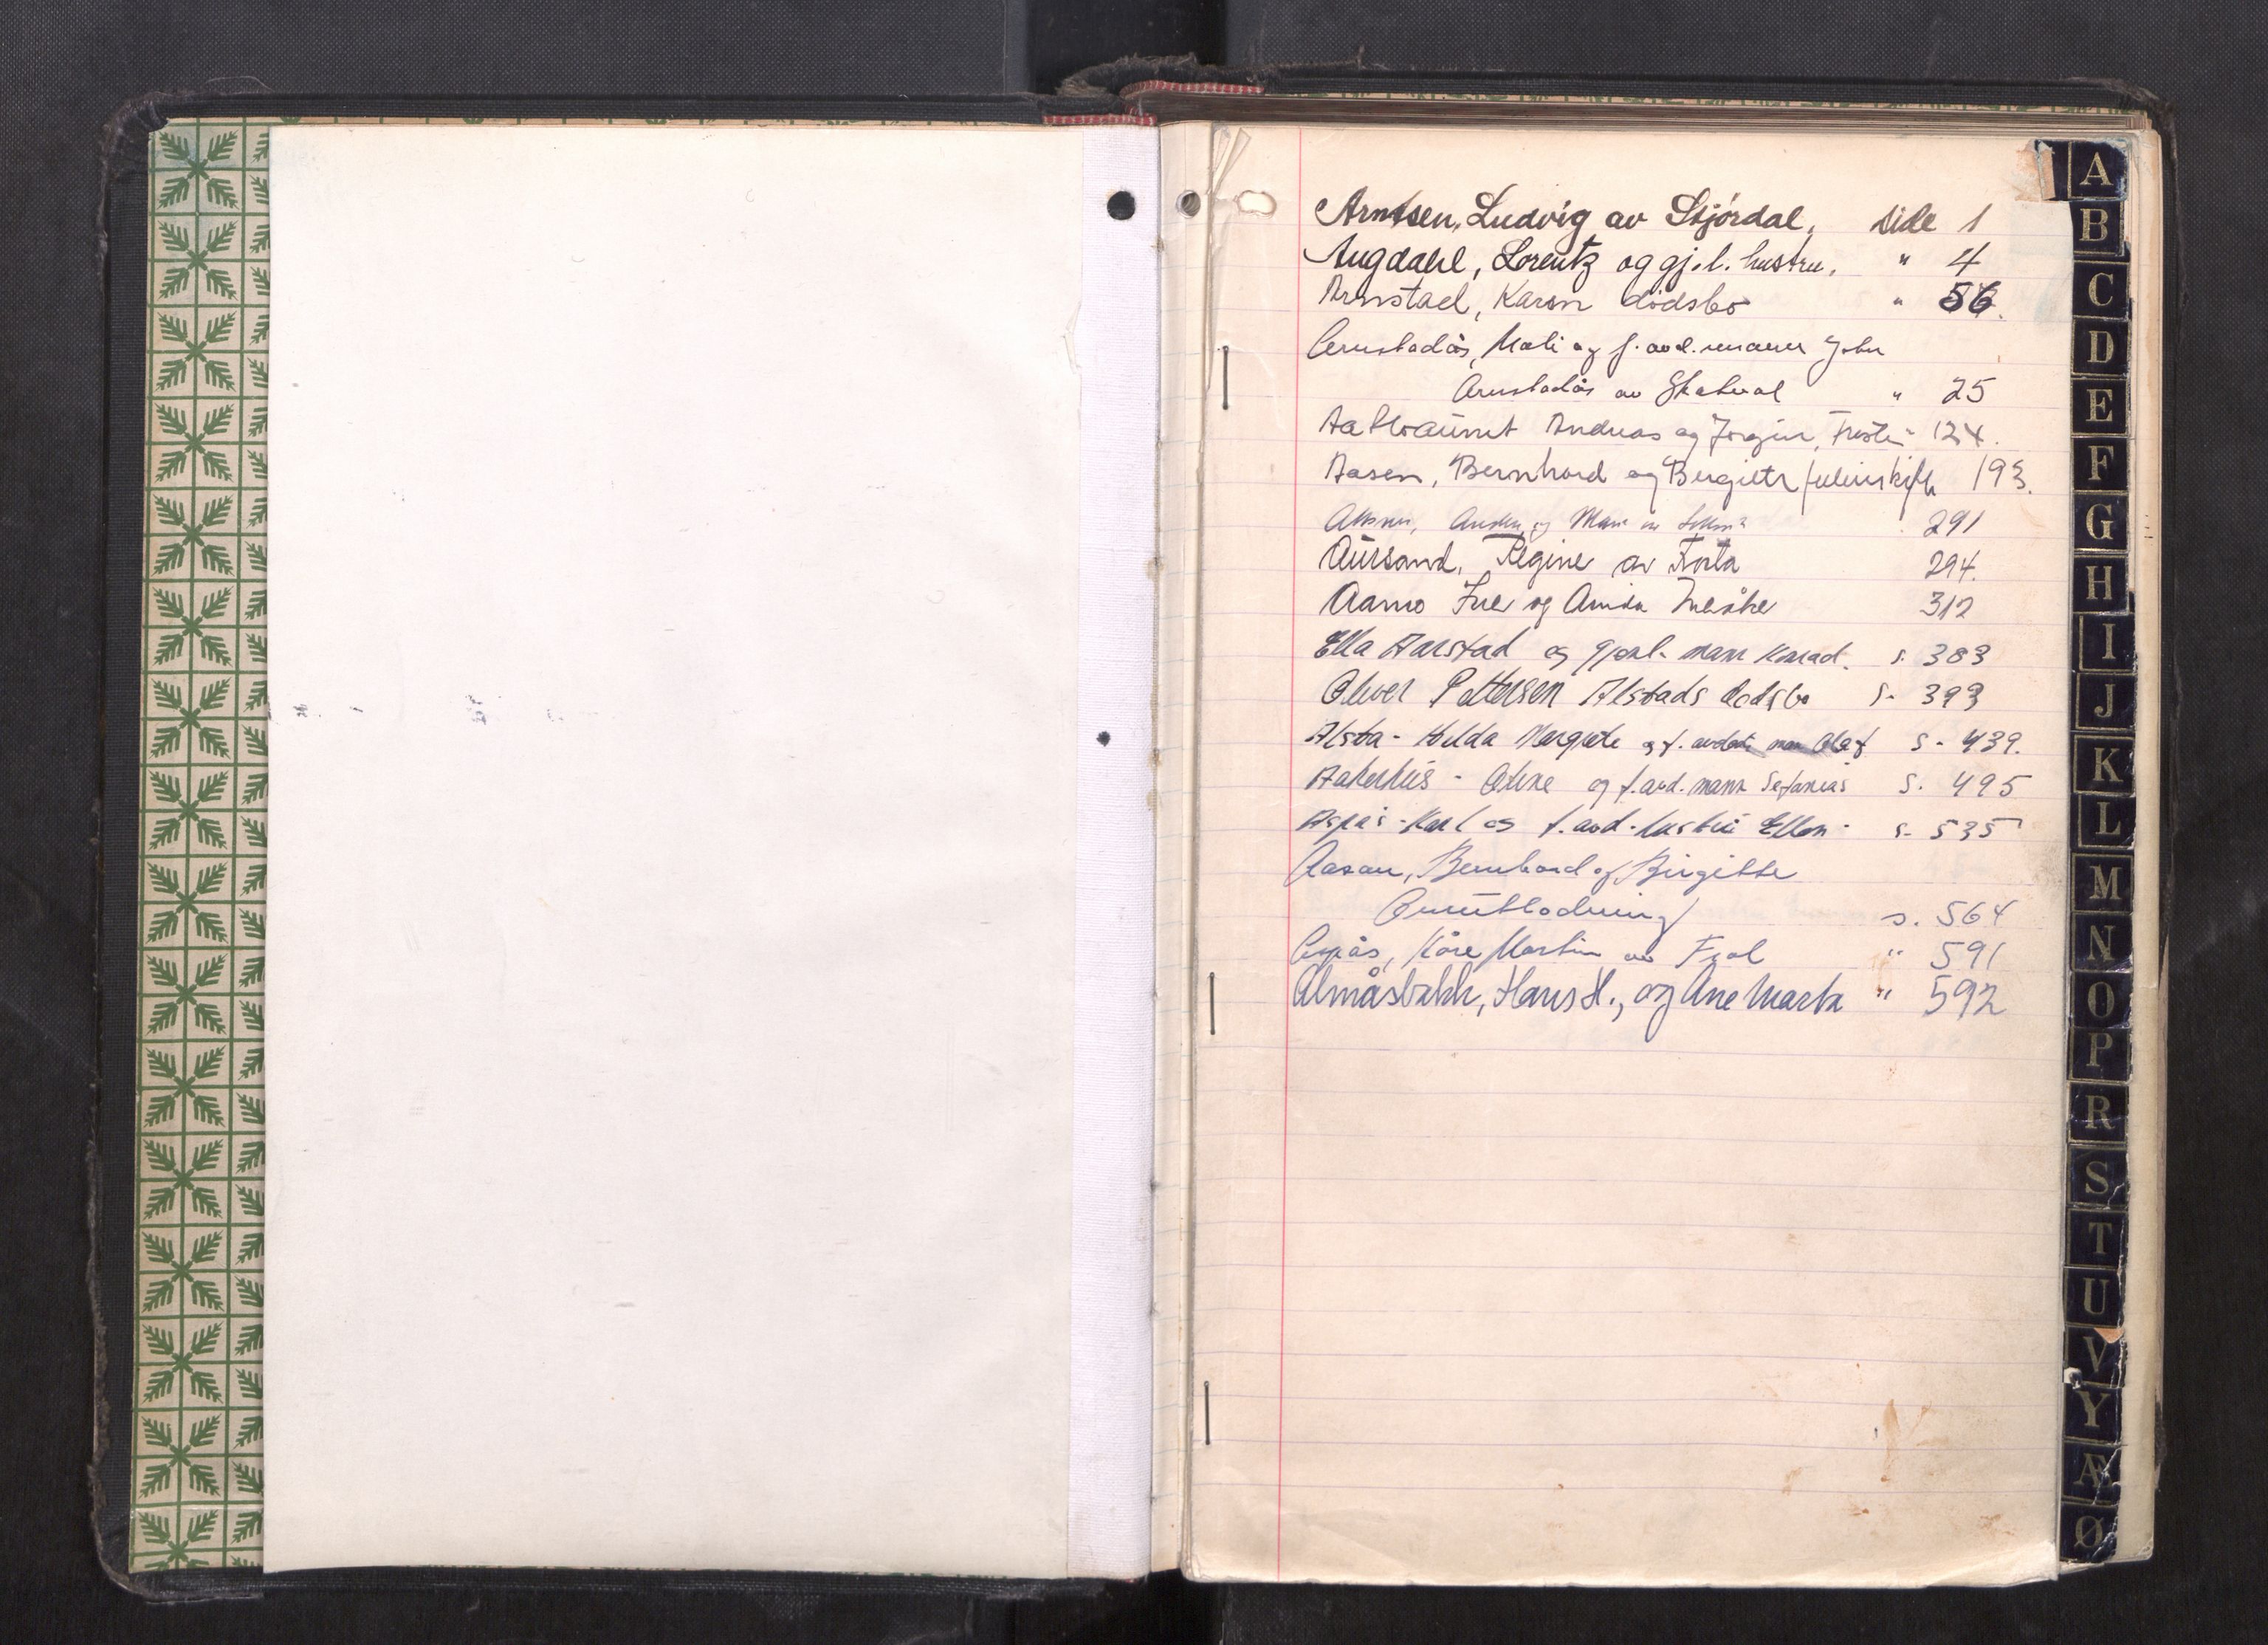 Arntsen, Ludvig av Stjórdal, side 1
Augdahl, Lorentz og gj.l. hustru, " 4
Arnstad, Karen dödsbo " 56.
Arnstadås, Mali og f. avd. mann John
Arnstadås av Skatval " 25
Andreas og Jørgine, Frosta - 124.
Aasen, Bernhard og Bergitte 193.
og 291
Aursand, Regine av Frosta 294.
Aamo Iver og 312
Ella Aarstad og gjenl. mann Konrad. s. 383
Oliver Pettersen Alstads dødsbo s. 393
Alstad - Hilda Margrete og f. avdøde mann Olaf s. 439.
Aakerhus - Oline og f. avd. mann Sefanias s. 495
Aspås - Karl og f. avd. hustru Ellen - s. 535
Aasen, Bernhard og Birgitte
Omutlodning s. 564
Aspås, Kåre Martin av Frol " 591
Almåsbakk, Hans H., og Ane Marta " 592
A
B
C
D
E
F
G
H
I
J
K
L
M
N
O
P
R
S
T
U
V
Y
Æ
Ø